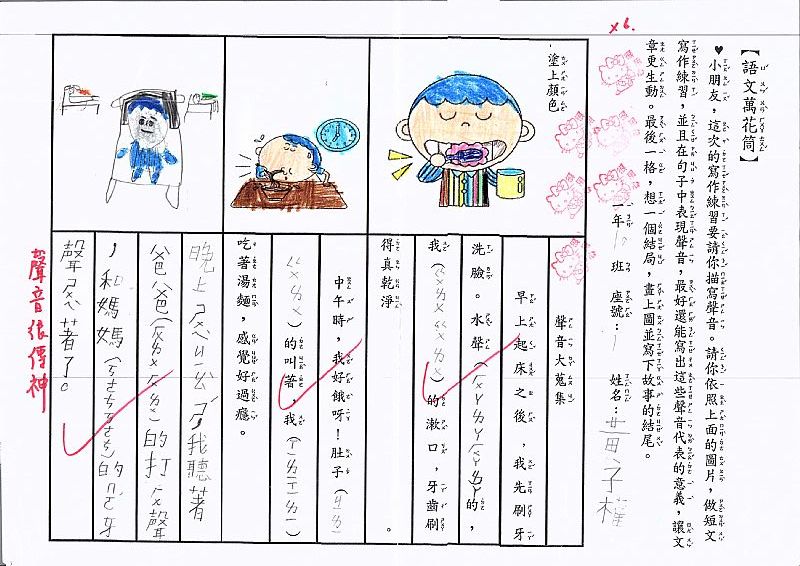 x6.
【語文萬花筒】
♥小朋友，這次的寫作練習要請你描寫聲音。請你依照上面的圖片，做短文
寫作練習，並且在句子中表現聲音，最好還能寫出這些聲音代表的意義，讓文
章更生動。最後一格，想一個結局，畫上圖並寫下故事的結尾。
一年 班 座號： 姓名：
塗上顏色
聲音大蒐集
早上起床之後，我先刷牙
洗臉。水聲（ㄏㄨㄚㄌㄚㄏㄨㄚㄌㄚ）的，
我（ㄍㄨㄌㄨㄍㄨㄌㄨ）的漱口，牙齒刷
得真乾淨。
中午時，我好餓呀！肚子（ㄍㄌ
ㄍㄨㄌㄨ）的叫著，我（ㄒㄌㄒㄌ）
吃著湯麵，感覺好過癮。
晚上ㄕㄨㄟˋㄐㄧㄠˋㄕˊ，我聽著
爸爸（ㄏㄨㄌㄨㄏㄨㄌㄨ）的打ㄏㄨ聲
，和媽媽的ㄇㄛˊ牙
聲ㄕㄨㄟˋ著了。
聲音很傳神